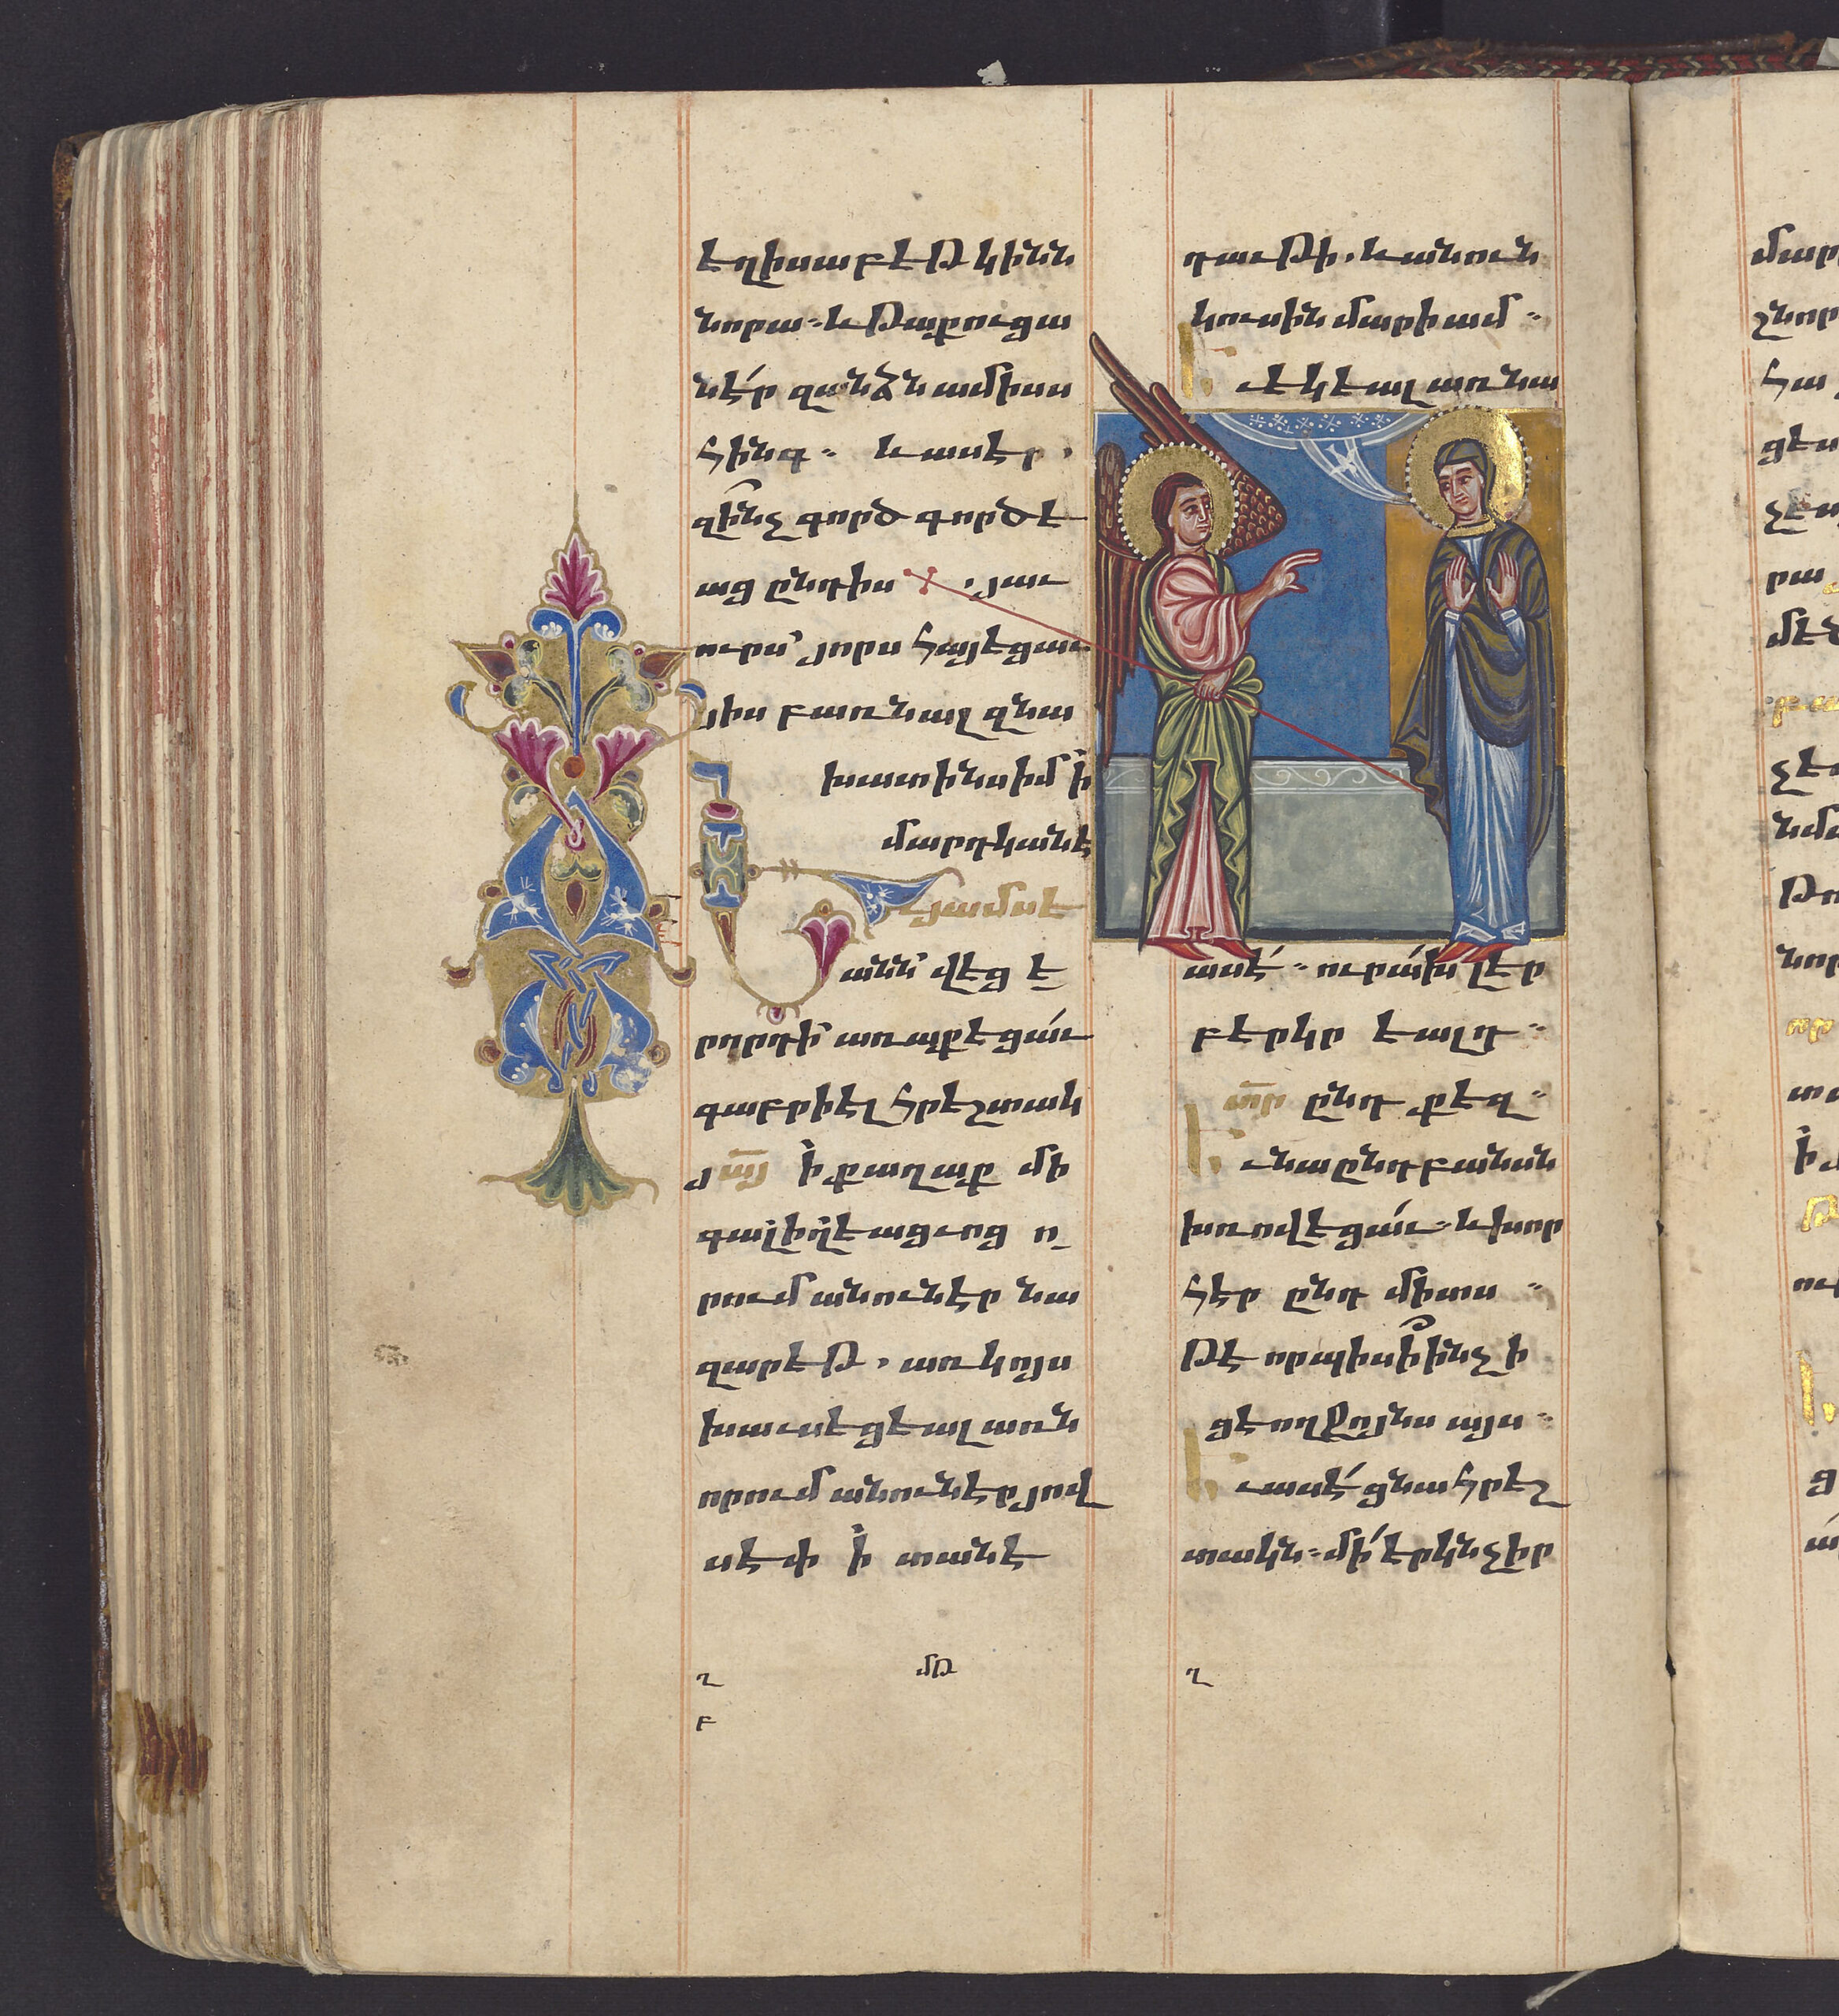 եղիսաբեթ կինն
նորա ։ և թաքուցա
նէ՛ր զանձն ամիսս
հինգ ։ և ասէր .
զի՞նչ գործ գործե
աց ընդիս . յաւ
ուրս՝ յորս հայեցաւ
յիս բառնալ զնա
խատինս իմ ի՛
մարդկանէ
Եւ յամսե
անն՝ վեց ե
րորդի՝ առաքեցա՛ւ
գաբրիէլ հրեշտակ
յա՟յ ի՛ քաղաք մի
գալիլեացւոց ո
րում անուն էր նա
զարեթ . առ կոյս
խաւսեցեալ առն
որում անուն էր յով
սեփ ի՛ տանէ
դաւթի . և անուն
կուսին մարիամ ։
Եւ եկեալ առ նա
ասէ՛ ։ ուրա՛խ լեր
բերկր եալդ ։
տ՟ր ընդ քեզ ։
Եւ նա ընդ բանսն
խռովեցա՛ւ ։ և խոր
հէր ընդ միտս ։
թէ որպիսի՞ ինչ ի
ցէ ողջոյնս այս ։
Եւ ասէ՛ ցնա հրեշ
տակն ։ մի՛ երկնչիր
ղ մթ ղ
բ